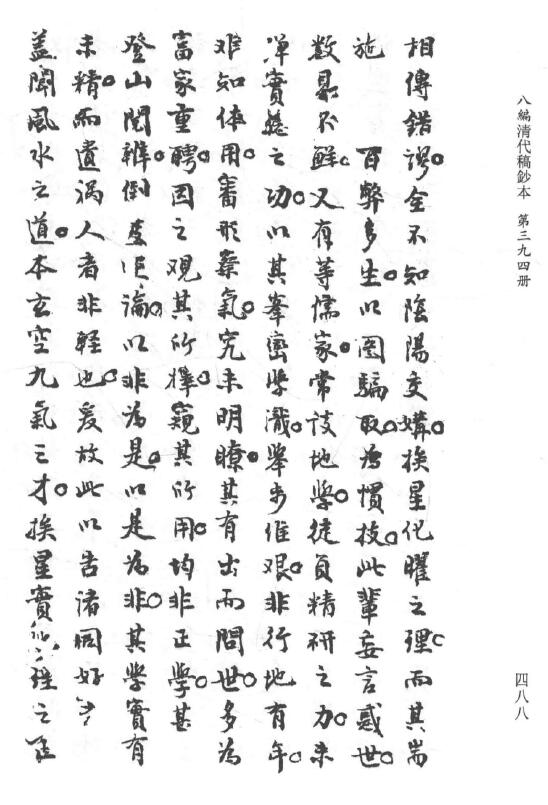 八編清代稿鈔本 第三九四册
四八八
相傳錯謬。全不知陰陽交媾。挨星化曜之理。而其耑
施 百弊多生。以圖騙取為慣技。此輩妄言惑世。
數最不鮮。又有等儒家。常談地學。徒負精研之力。未
殫實驗之功。以其峯巒學識。舉步維艱。非行地有年。
难知体用。審形察氣。究未明瞭。其有出而問世。多為
富家重聘。因之观其所擇。窺其所用。均非正學。甚
登山閱辨。倒 讵論。以非為是。以是為非。其學實有
未精。而遺渦人者非輕也。爰故此以告諸同好
蓋聞風水之道。本玄空九氣三才。挨星實 理之